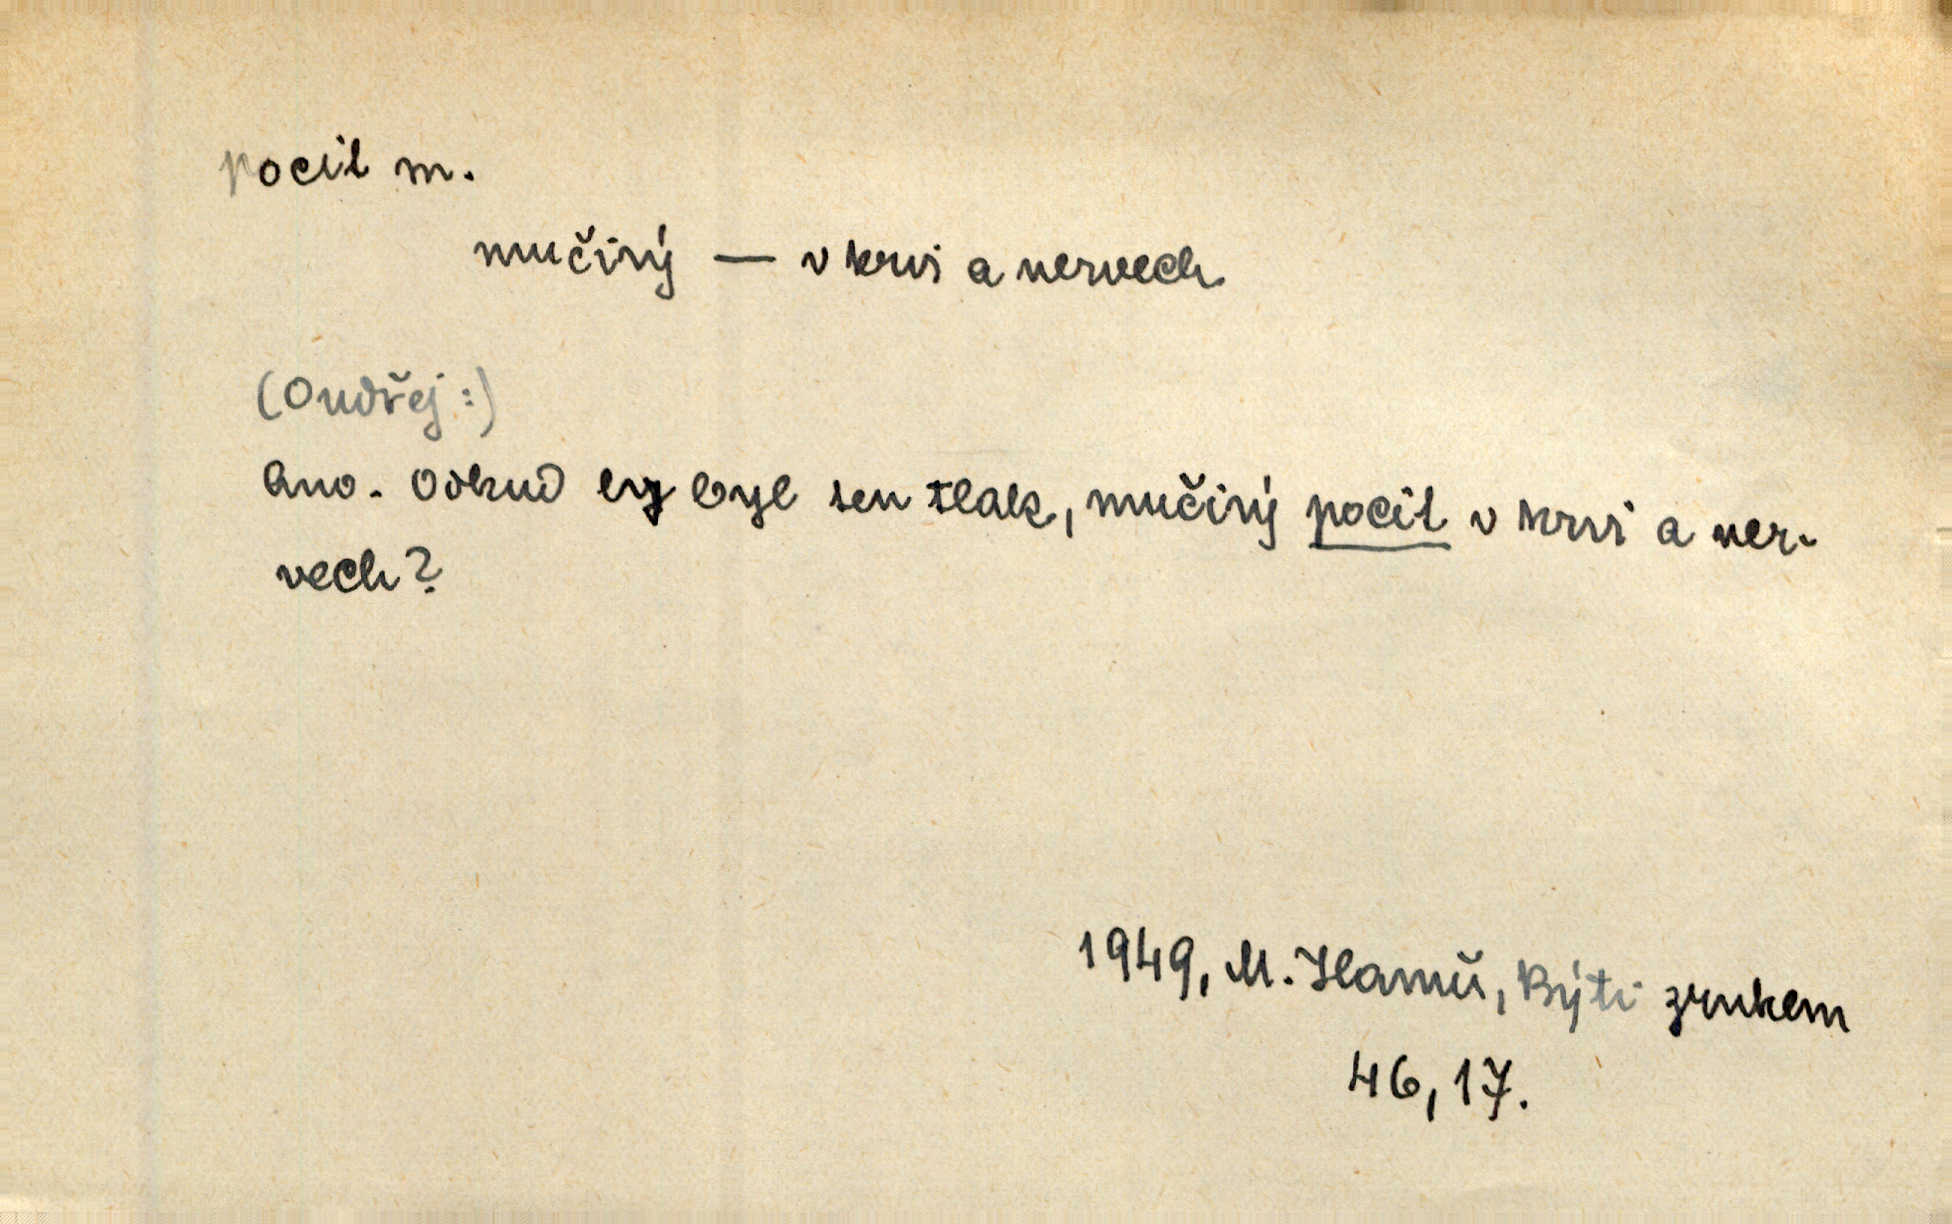 pocit m.
mučivý — v krvi a nervech
(Ondřej:)
Ano. Odkud by byl ten tlak, mučivý pocit v krvi a ner-
vech?
1949, M. Hanuš, Býti zrnkem
46, 17.